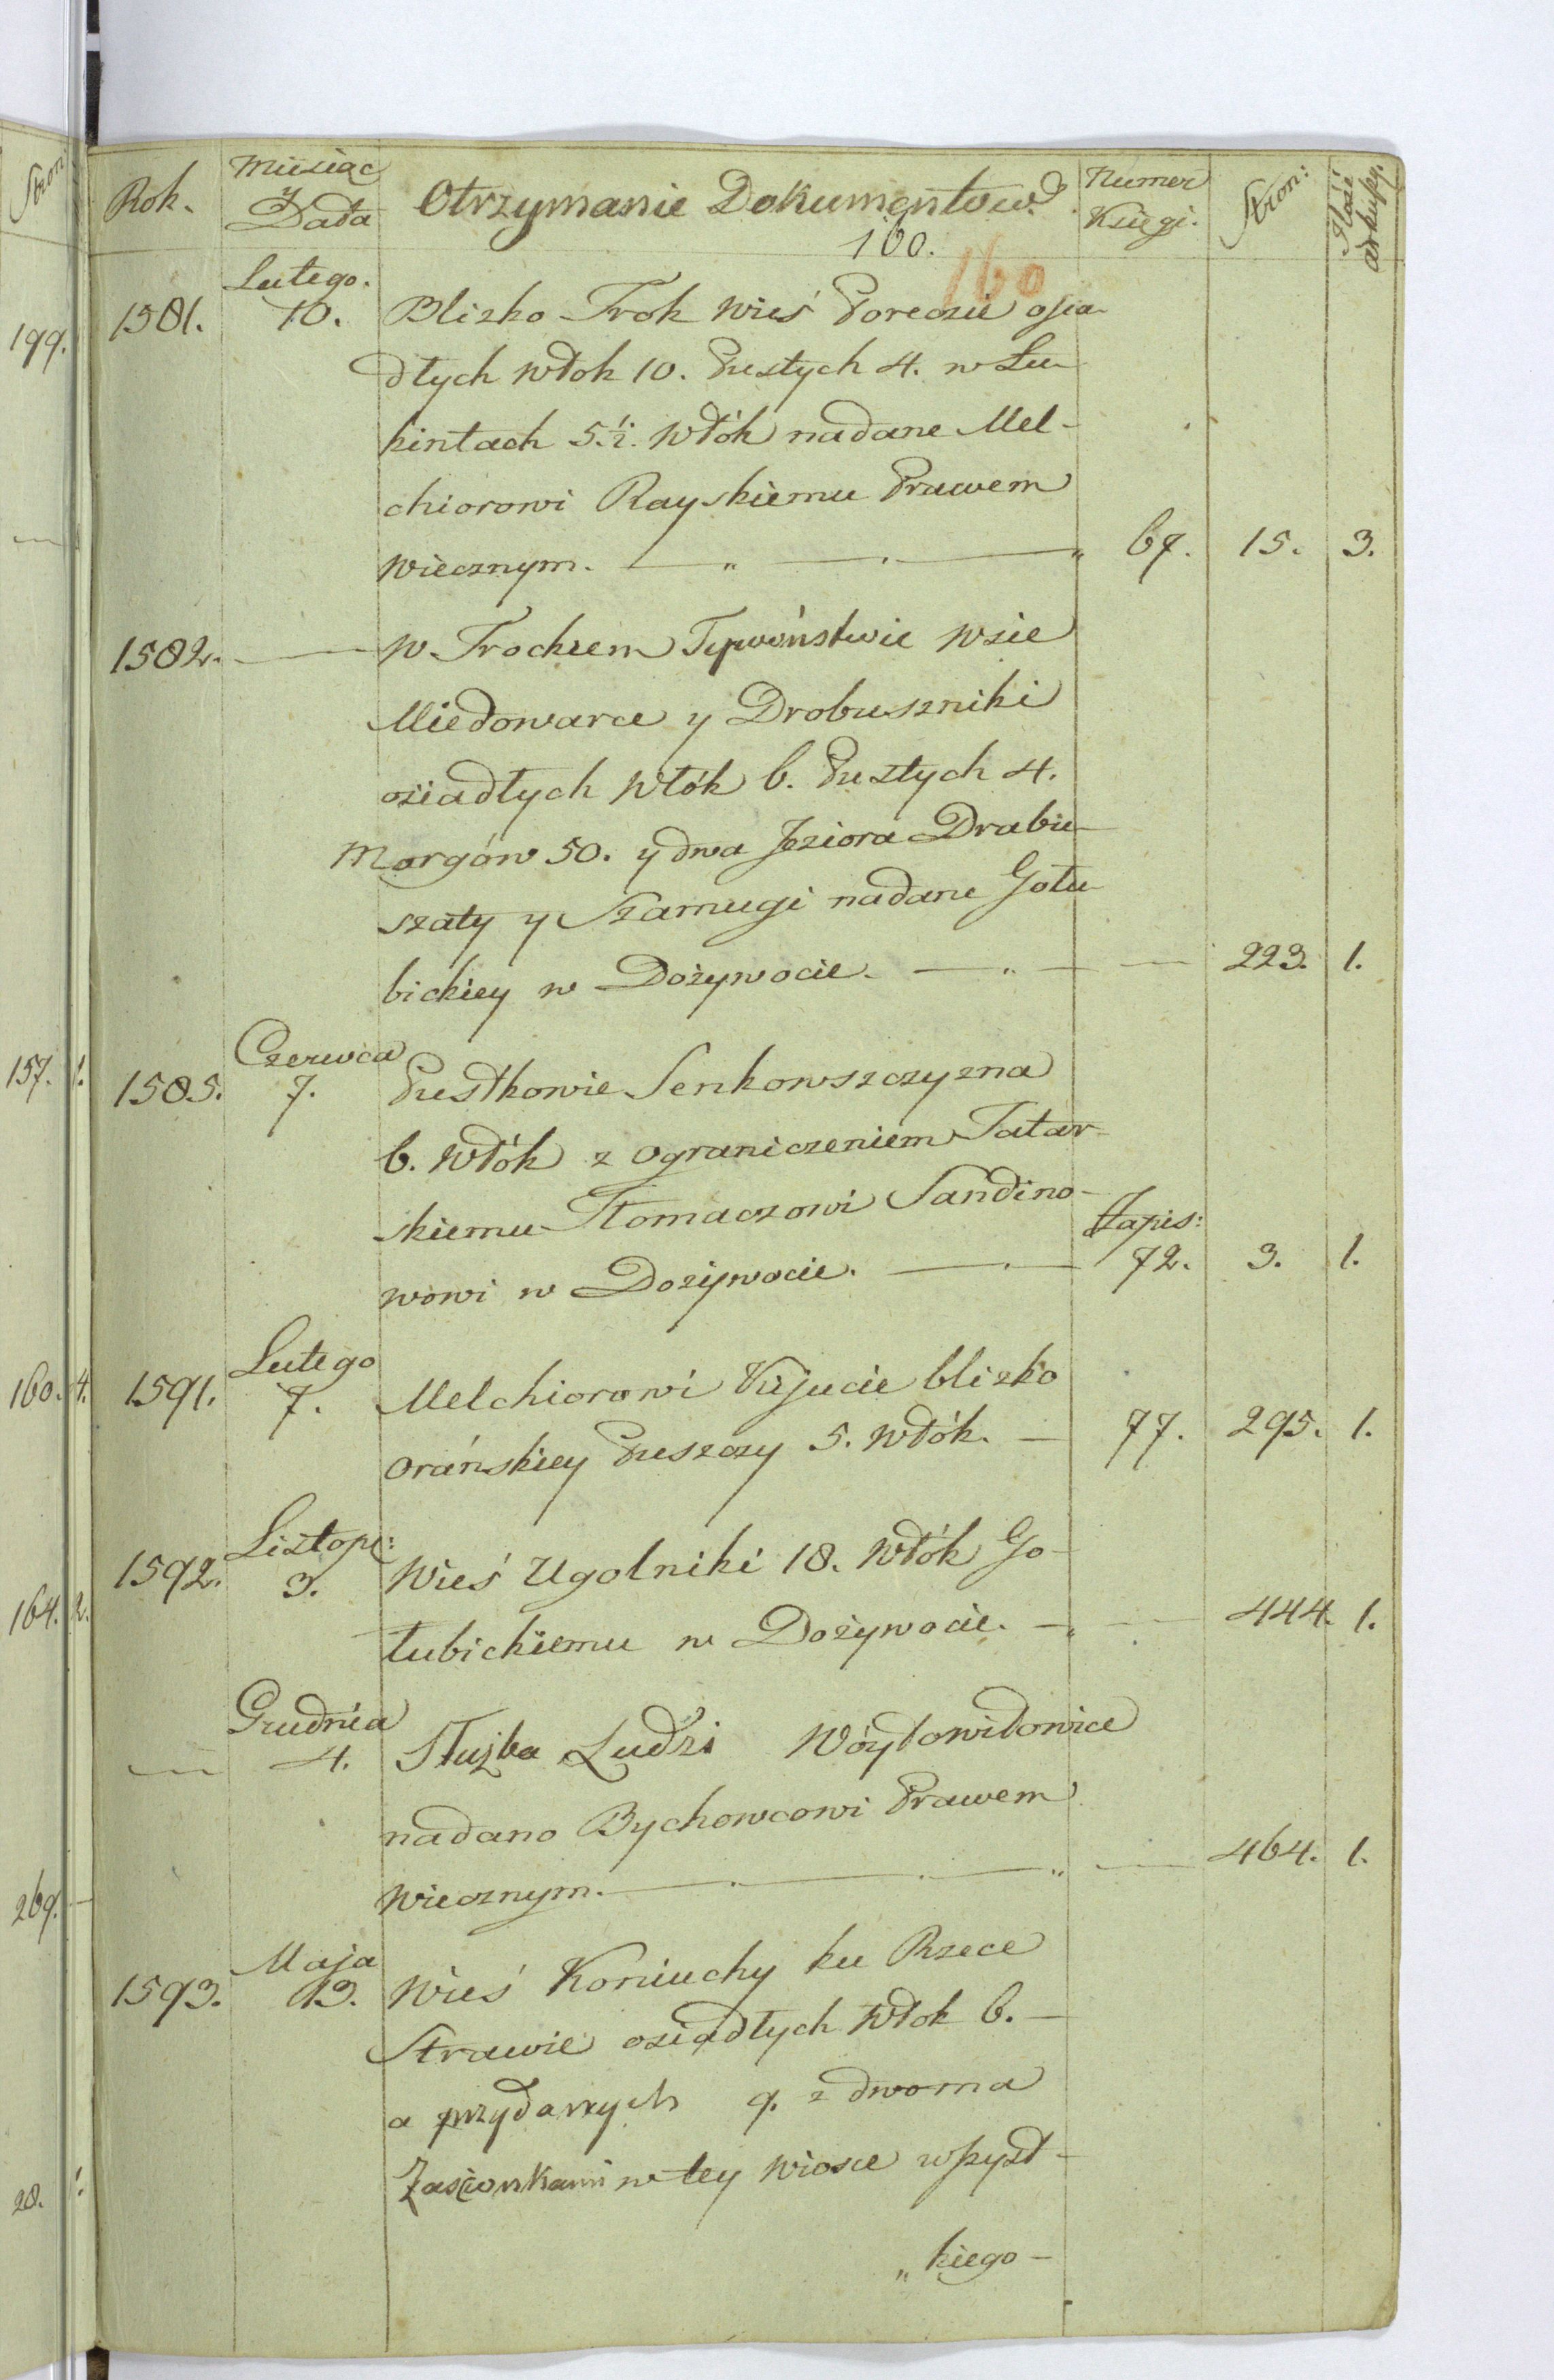 Stron:
Rok. Miesiąc y Data Otrzymanie Dokumentow. Numer Księgi. Stron: Ilość arkuszy.
160.
160
Lutego.
199. 1581. 10. Blizko Trok wieś Poreczie osia-
dłych włok 10. Pustych 4. w Lu-
kintach 5.½. włók nadane Mel-
chiorowi Rayskiemu Prawem
wiecznym. — „ — . — „ 67. 15. 3.
1582. — w Trockiem Tywoństwie wsie
Miedowarce y Drobuszniki
osiadłych włók 6. Pustych 4.
Morgów 50. y dwa Jeziora Drabu-
szaty y Szamugi nadane Gołu-
bickiey w Dożywocie. — „ — — 223. 1.
157. 1. 1585. Czerwca
7. Pustkowie Senkowszczyzna
6. włók z ograniczeniem Tatar-
skiemu Tłomaczowi Sandino- Zapis:
wowi w Dożywocie. — . — 72. 3. 1.
Lutego
160. 4. 1591. 7. Melchiorowi Kujucie blizko
Orańskiey Puszczy 5. włók. — 77. 295. 1.
Listop:
164. 2. 1592. 3. Wieś Ugolniki 18. włók Go-
łubickiemu w Dożywocie. — „ — 444. 1.
Grudnia
— 4. Służba Ludzi Wóytowidowice
nadano Bychowcowi Prawem
269. — wiecznym. — . — . — „ — 464. 1.
Maja
1593. 13. Wieś Koniuchy ku Rzece
Strawie osiadłych włok 6. —
a przydanych 9. z dwoma
28. 1. Zaściankami w tey wiosce wszyst-
„ kiego —